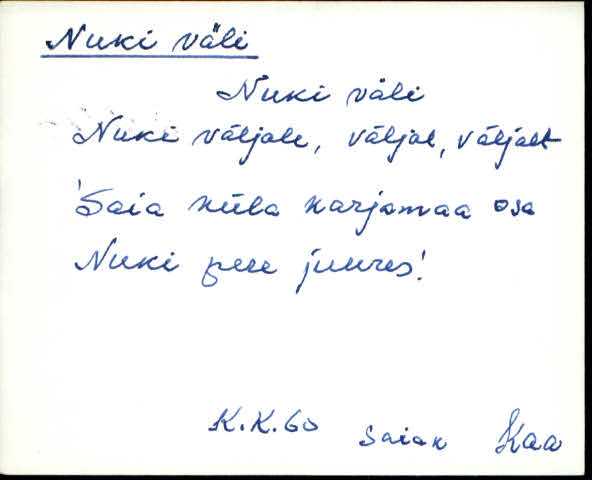 Nuki väli
Nuki väli
Nuki väljale, väljal, väljalt
Saia küla karjamaa osa
Nuki pere juures!
K.K.60 Saiak Kaa